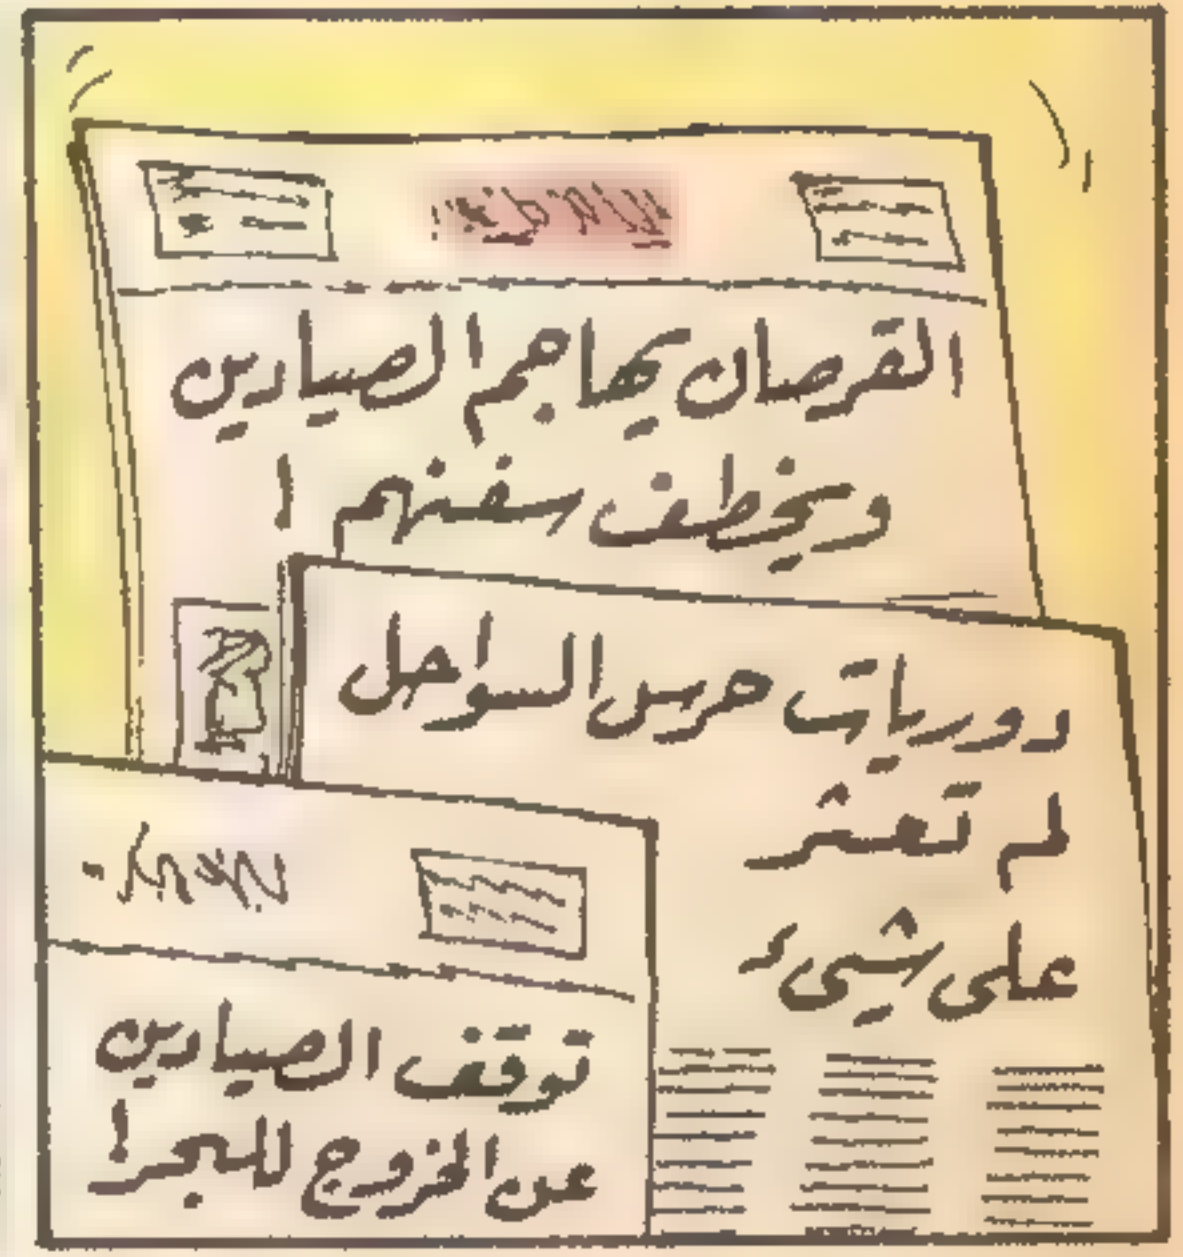 القرصان يهاجم الصيادين
ويخطف سفنهم !
دوريات حرس السواحل
لم تعثر
على شيىء
توقف الصيادين
عن الخروج للبحر !